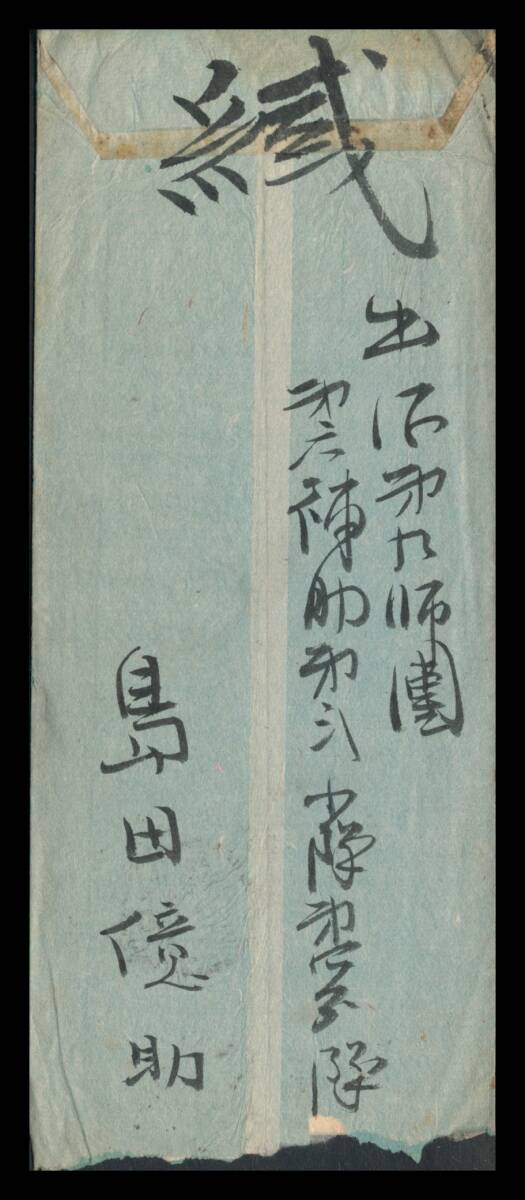 緘
出征第九師團
第六補助第弐小隊第四分隊
島田億助